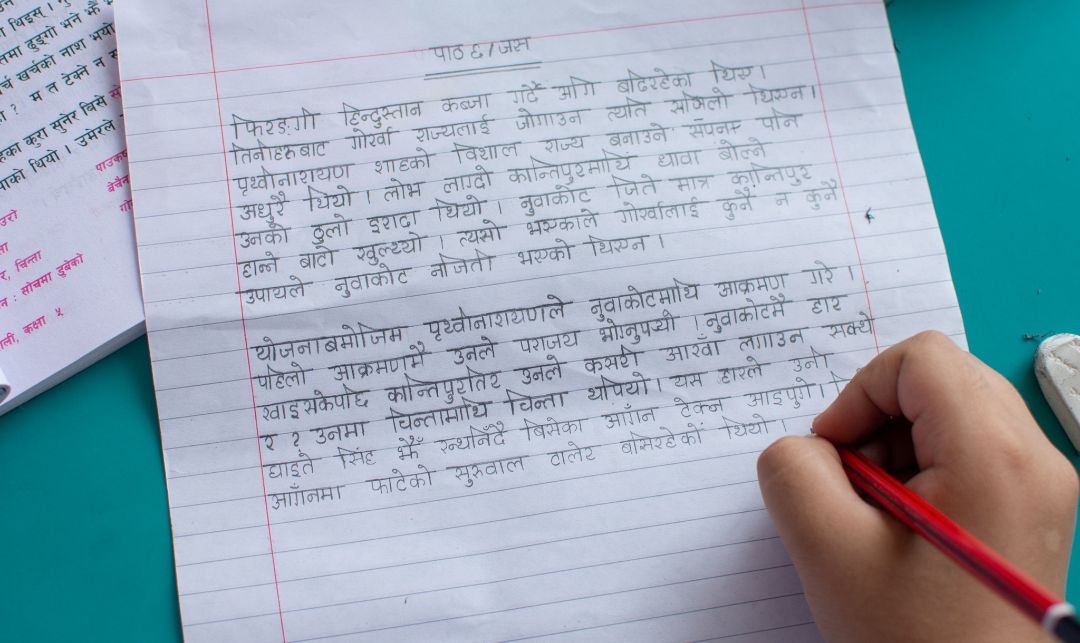 थिइस् ।
तमा डुङ्गो भने झैँ
चे खर्चको नाश भयो
? म त टेक्ने न स
हेका कुरा सुनेर बिसे
पाको थियो । उमेरले
चिन्ता
: सोचमा डुबेको
कक्षा ५
पाठ ८/जस
फिरङ्गी हिन्दुस्तान कब्जा गर्दै अगि बढिरहेका थिए ।
तिनीहरूबाट गोर्खा राज्यलाई जोगाउन त्यति सजिलो थिएन ।
पृथ्वीनारायण शाहको विशाल राज्य बनाउने सपना पनि
अधुरै थियो । लोभ लाग्दो कान्तिपुरमाथि धावा बोल्ने
उनको ठुलो इरादा थियो । नुवाकोट जिते मात्र कान्तिपुर
हान्ने बाटो खुल्थ्यो । त्यसो भएकाले गोर्खालाई कुनै न कुनै
उपायले नुवाकोट नजिती भएको थिएन ।
योजनाबमोजिम पृथ्वीनारायणले नुवाकोटमाथि आक्रमण गरे ।
पहिलो आक्रमणमै उनले पराजय भोग्नुपर्‍यो । नुवाकोटमै हार
खाइसकेपछि कान्तिपुरतिर उनले कसरी आँखा लगाउन सक्थे
र ? उनमा चिन्तामाथि चिन्ता थपियो । यस हारले उनी
घाइते सिंह झैँ रन्थनिँदै बिसेका आँगन टेक्न आइपुगे ।
आँगनमा फाटेको सुरुवाल टालेर बसिरहेको थियो ।